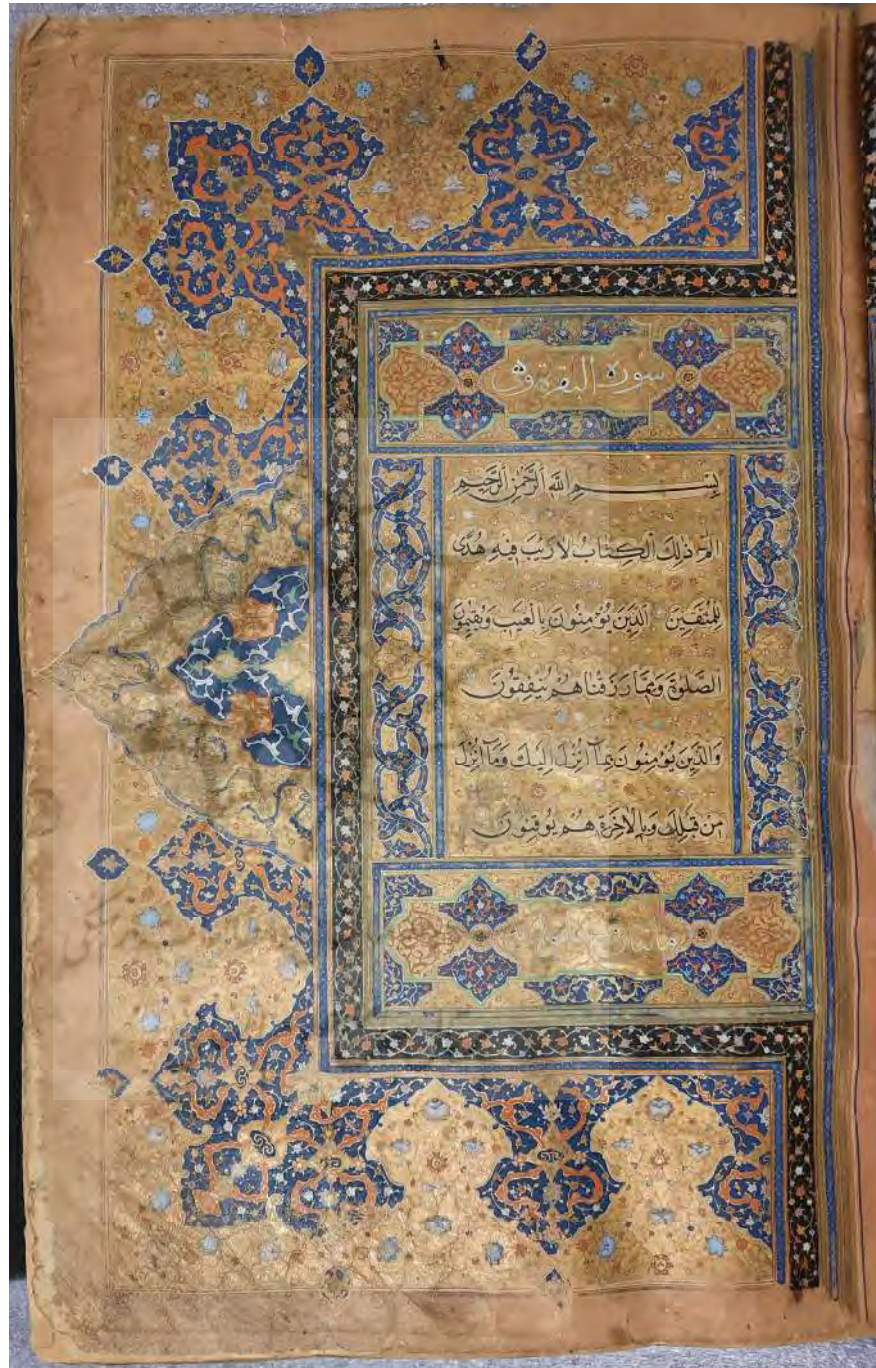 سورة البقرة وهي
بِسْمِ اللَّهِ الرَّحْمَٰنِ الرَّحِيمِ
الم ذَٰلِكَ الْكِتَابُ لَا رَيْبَ فِيهِ هُدًى
لِلْمُتَّقِينَ الَّذِينَ يُؤْمِنُونَ بِالْغَيْبِ وَيُقِيمُونَ
الصَّلٰوةَ وَمِمَّا رَزَقْنَاهُمْ يُنْفِقُونَ
وَالَّذِينَ يُؤْمِنُونَ بِمَا أُنْزِلَ إِلَيْكَ وَمَا أُنْزِلَ
مِنْ قَبْلِكَ وَبِالْآخِرَةِ هُمْ يُوقِنُونَ